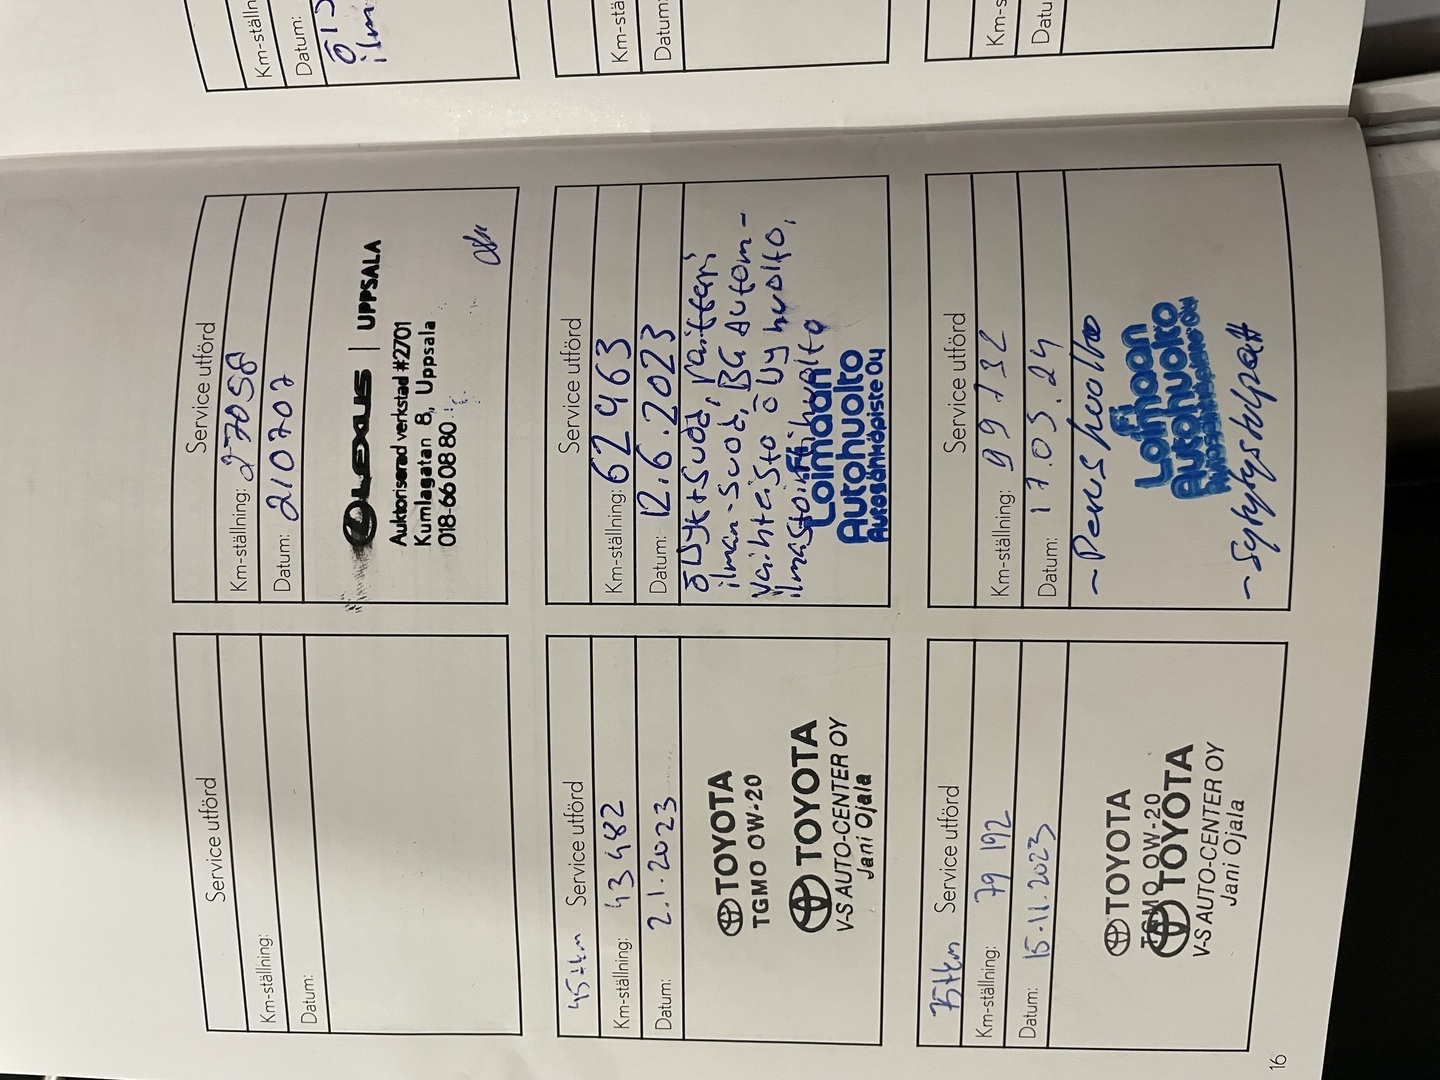 Service utförd
Km-ställning:
Datum:
Service utförd
Km-ställning: 27058
Datum: 210707
LEXUS | UPPSALA
Auktoriserad verkstad #2701
Kumlagatan 8, Uppsala
018-66 08 80
45tkm Service utförd
Km-ställning: 43 482
Datum: 2.1.2023
TOYOTA
TGMO OW-20
TOYOTA
V-S AUTO-CENTER OY
Jani Ojala
Service utförd
Km-ställning: 62463
Datum: 12.6.2023
öljyt+suod, raittari
ilman-suod, BG Autom-
vaihteisto öljyhuolto,
ilmastointihuolto
Loimaan
Autohuolto
Autosähköpiste Oy
75tkm Service utförd
Km-ställning: 79 192
Datum: 15.11.2023
TOYOTA
TGMO OW-20
TOYOTA
V-S AUTO-CENTER OY
Jani Ojala
Service utförd
Km-ställning: 99732
Datum: 17.05.24
- Perushuolto
Loimaan
Autohuolto
- Sytytystulpat
16
Km-ställn
Datum:
ilm
Km-stä
Datum:
Km-s
Datu